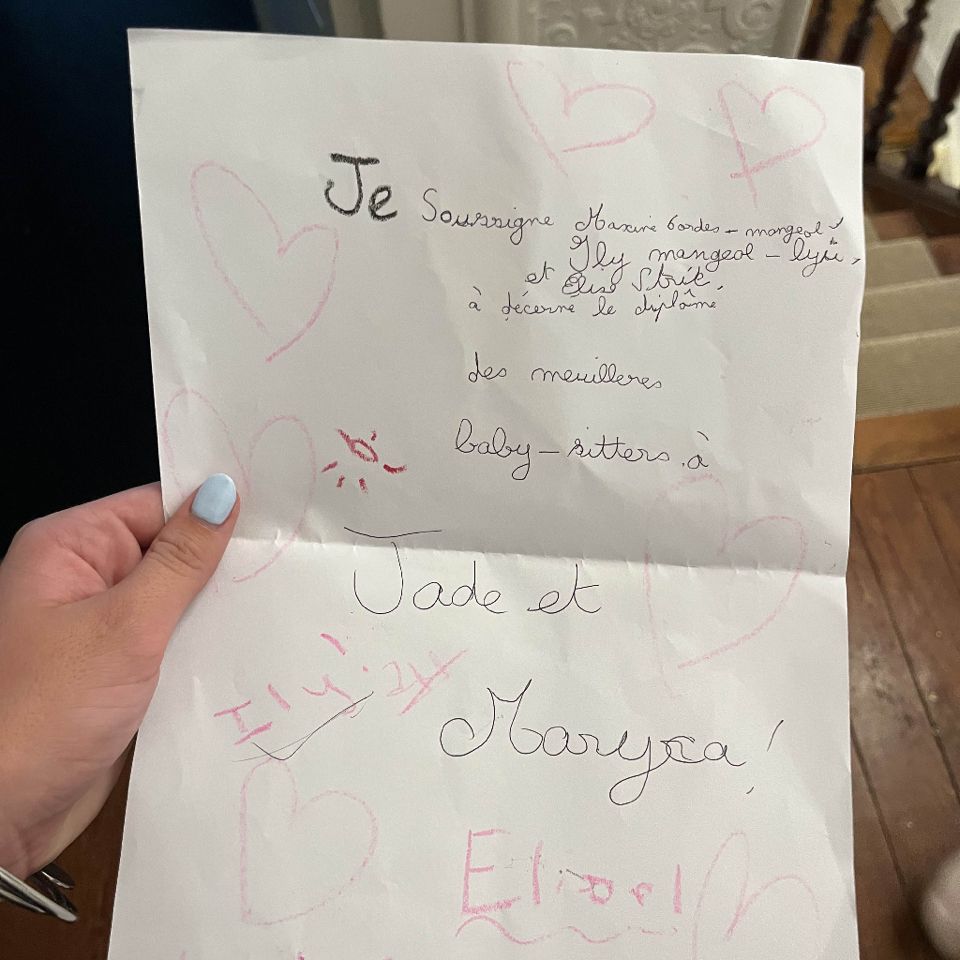 Je Soussigne Maxine bordes - mangeol,
Ily mangeol - lyri,
et Elise Strik,
à décerne le diplôme
des meuilleres
baby-sitters à
Jade et
Ily
Maryca!